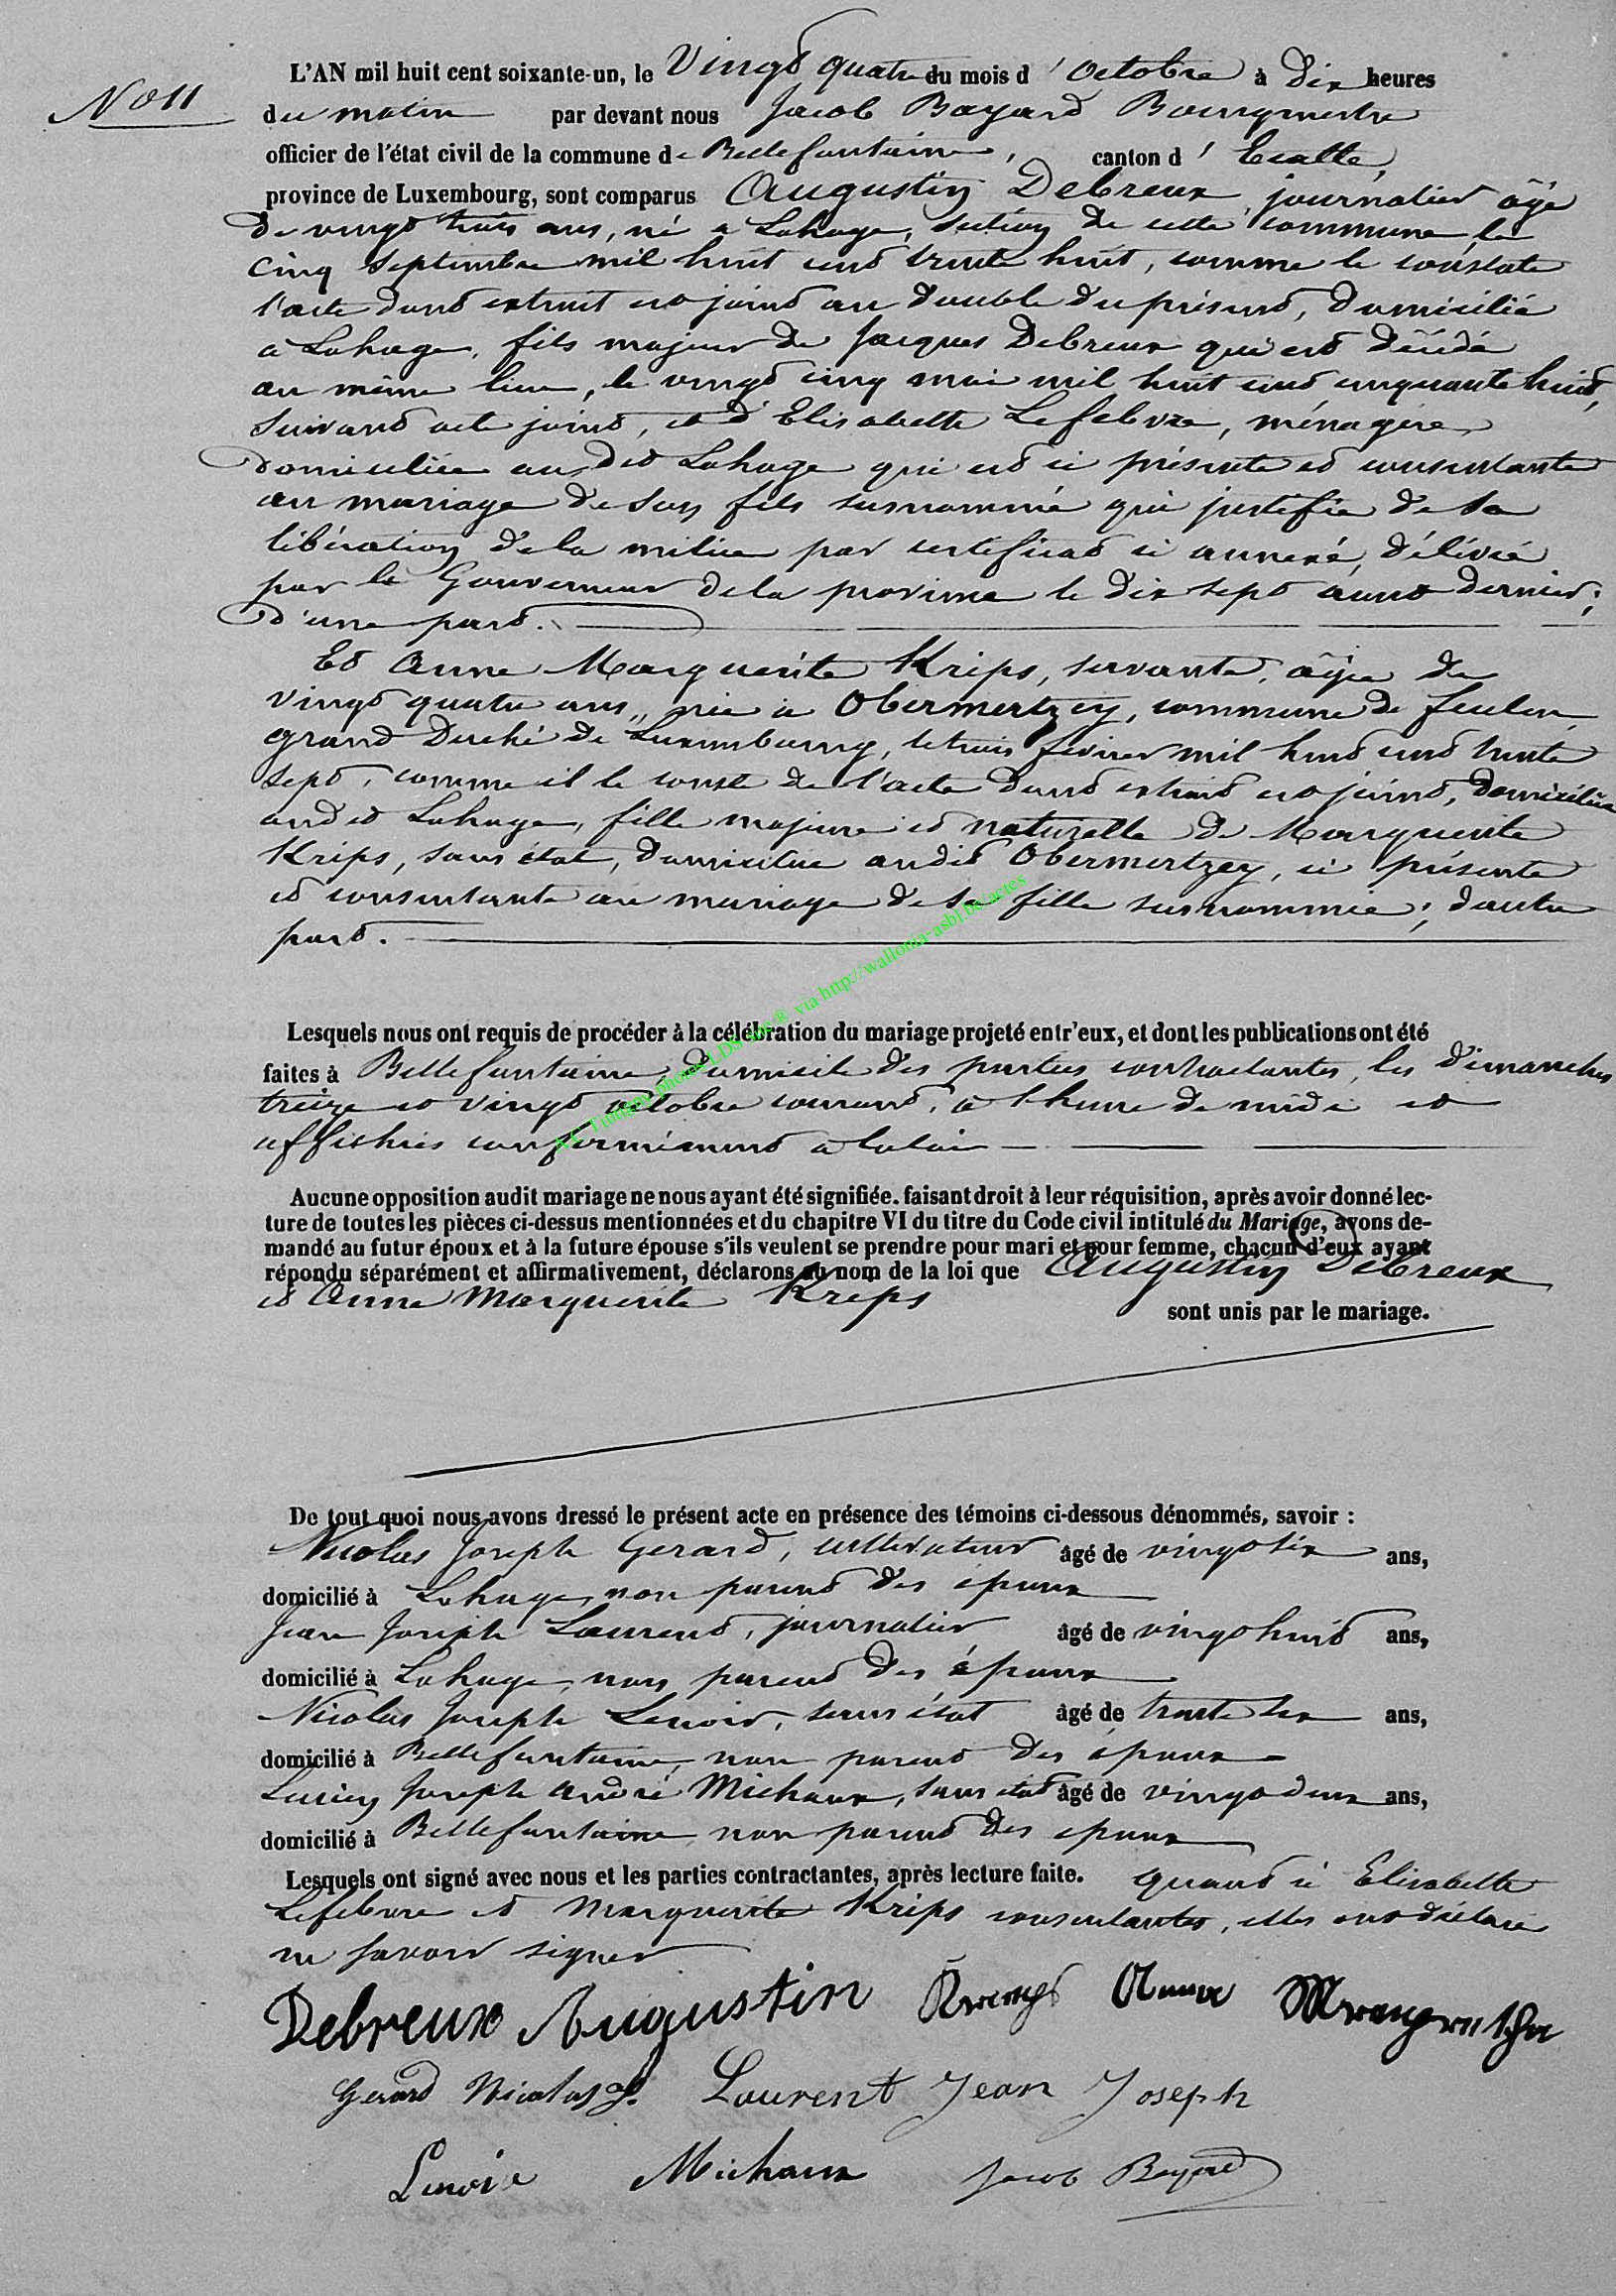 No 11
L'AN mil huit cent soixante-un, le Vingt quatre du mois d'octobre à Dix heures
du matin par devant nous Jacob Bayard Bourgmestre
officier de l'état civil de la commune de Bellefontaine, canton d'Etalle,
province de Luxembourg, sont comparus Augustin Debreux, journalier âgé
de vingt trois ans, né a Lahage, section de cette commune, le
cinq septembre mil huit cent trente huit, comme le constate
l'acte dont extrait est joint au double du présent, domicilié
à Lahage, fils majeur de Jacques Debreux qui est décédé
au même lieu, le vingt cinq mai mil huit cent cinquante huit,
suivant acte joint, et d'Elisabette Lefebvre, ménagère,
domiciliée au dit Lahage qui est ici présente et consentante
au mariage de son fils susnommé qui justifie de sa
libération de la milice par certificat ci annexé, délivré
par le Gouverneur de la province le dix sept aout dernier;
d'une part.
Et Anne Marguerite Krips, servante, âgée de
vingt quatre ans, née a Obermertzig, commune de feulen
grand Duché de Luxembourg, le trois fevrier mil huit cent trente
sept, comme il le conste de l'acte dont extrait est joint, domiciliée
audit Lahage, fille majeure et naturelle de Marguerite
Krips, sans état, domiciliée audit Obermertzeg, ici présente
et consentante au mariage de sa fille susnommée; d'autre
part.
Lesquels nous ont requis de procéder à la célébration du mariage projeté entr'eux, et dont les publications ont été
faites à Bellefontaine, domicile des parties contractantes, les dimanches
treize et vingt octobre courant, à l'heure de midi et
affichées conformément a la loi
Aucune opposition audit mariage ne nous ayant été signifiée. faisant droit à leur réquisition, après avoir donné lec-
ture de toutes les pièces ci-dessus mentionnées et du chapitre VI du titre du Code civil intitulé du Mariage, avons de-
mandé au futur époux et à la future épouse s'ils veulent se prendre pour mari et pour femme, chacun d'eux ayant
répondu séparément et affirmativement, déclarons au nom de la loi que Augustin Debreux
et Anne Marguerite Kreps sont unis par le mariage.
De tout quoi nous avons dressé le présent acte en présence des témoins ci-dessous dénommés, savoir :
Nicolas Joseph Gerard, cultivateur âgé de vingt six ans,
domicilié à Lahage, non parent des epoux
Jean Joseph Laurent, journalier âgé de vingt huit ans,
domicilié à Lahage, non parent des époux
Nicolas Joseph Lenoir, sans état âgé de trente six ans,
domicilié à Bellefontaine, non parent des époux
Lucien Joseph André Michaux, sans état âgé de vingt deux ans,
domicilié à Bellefontaine, non parent des epoux
Lesquels ont signé avec nous et les parties contractantes, après lecture faite. quant à Elisabette
Lefebvre et Marguerite Krips consentantes, elles ont déclaré
ne savoir signer
Debreux Augustin Anna
Gerard Nicolas J. Laurent Jean Joseph
Lenoir Michaux Jacob Bayard
via http://wallonia-asbl.be/actes